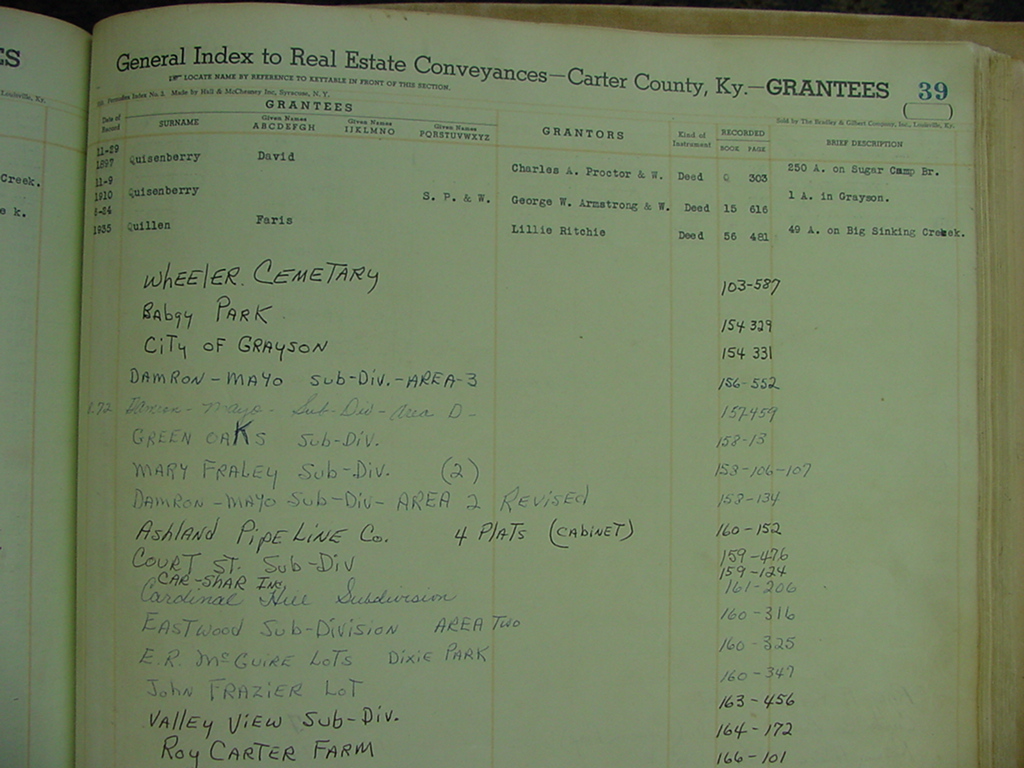 General Index to Real Estate Conveyances—Carter County, Ky.—GRANTEES 39
LOCATE NAME BY REFERENCE TO KEYTABLE IN FRONT OF THIS SECTION.
Made by Hall & McChesney Inc., Syracuse, N. Y. Sold by The Bradley & Gilbert Company, Inc., Louisville, Ky.
GRANTEES
Date of Record SURNAME Given Names ABCDEFGH Given Names IJKLMNO Given Names PQRSTUVWXYZ GRANTORS Kind of Instrument RECORDED BOOK PAGE BRIEF DESCRIPTION
11-29 1897 Quisenberry David Charles A. Proctor & W. Deed Q 303 250 A. on Sugar Camp Br.
11-9 1910 Quisenberry S. P. & W. George W. Armstrong & W. Deed 15 616 1 A. in Grayson.
1935 Quillen Faris Lillie Ritchie Deed 56 481 49 A. on Big Sinking Creek.
WHEELER CEMETARY 103-587
Babgy PARK 154 329
CITY OF GRAYSON 154 331
DAMRON-MAYO SUB-DIV.-AREA-3 156-552
Damron-Mayo-Sub-Div-Area D- 157-459
GREEN OAKS SUB-DIV. 158-13
MARY FRALEY SUB-DIV. (2) 158-106-107
DAMRON-MAYO SUB-DIV-AREA 2 REVISED 158-134
ASHLAND PIPELINE CO. 4 PLATS (CABINET) 160-152
COURT ST. SUB-DIV 159-476
CAR-SHAR INC. 159-124
Cardinal Hill Subdivision 161-206
EASTWOOD SUB-DIVISION AREA TWO 160-316
E.R. McGUIRE LOTS DIXIE PARK 160 325
John FRAZIER LOT 160-347
VALLEY VIEW SUB-DIV. 163-456
ROY CARTER FARM 164-172
166-101
S
Louisville, Ky.
Creek.
e k.